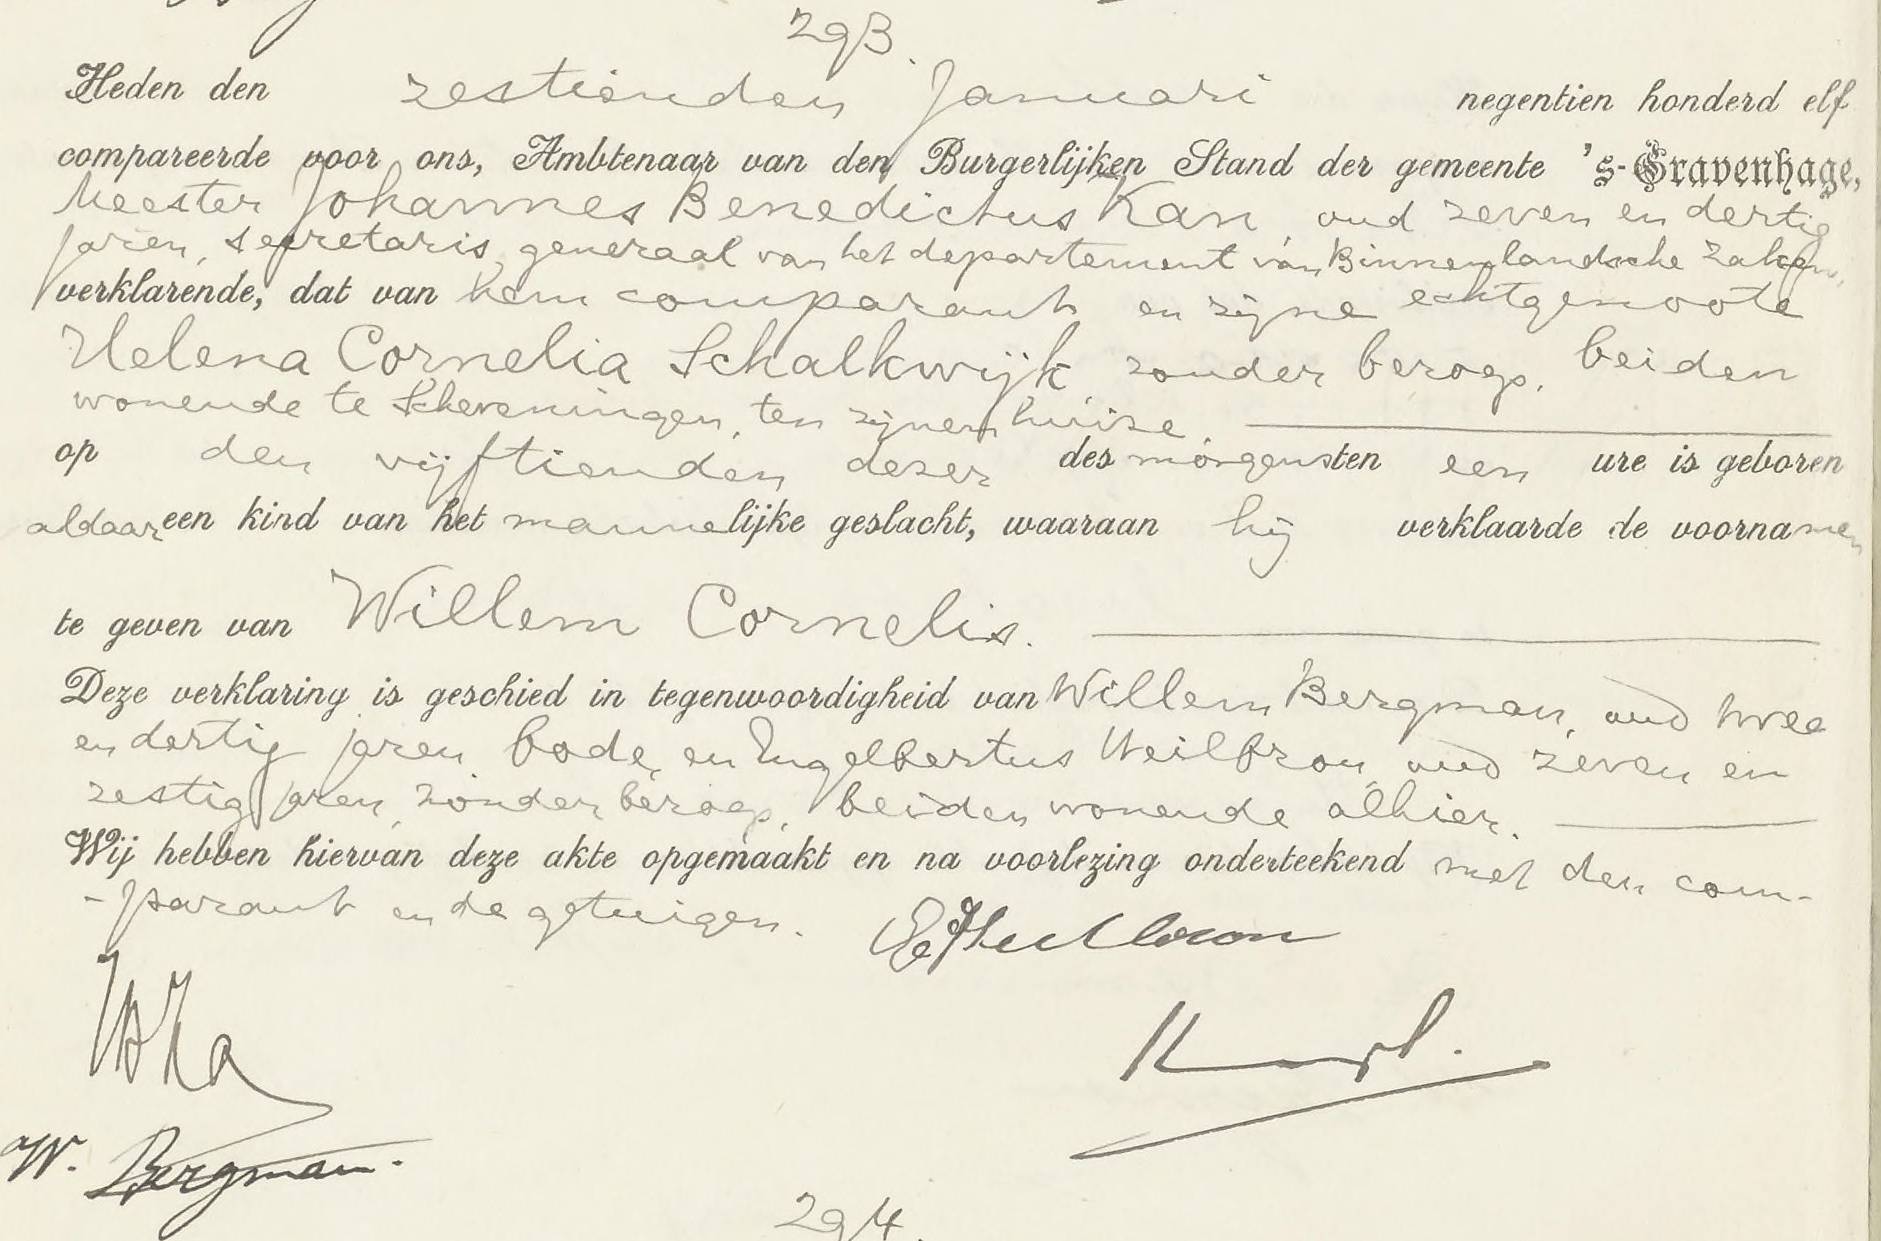 293.
Heden den zestienden Januari negentien honderd elf
compareerde voor ons, Ambtenaar van den Burgerlijken Stand der gemeente 's-Gravenhage,
Meester Johannes Benedictus Kan, oud zeven en dertig
jaren, secretaris generaal van het departement van Binnenlandsche Zaken,
verklarende, dat van hem comparant en zijne echtgenoote
Helena Cornelia Schalkwijk, zonder beroep, beiden
wonende te Scheveningen, ten zijnen huize,
op den vijftienden dezer des morgens ten een ure is geboren
aldaar een kind van het mannelijke geslacht, waaraan hij verklaarde de voornamen
te geven van Willem Cornelis.
Deze verklaring is geschied in tegenwoordigheid van Willem Bergman, oud twee
en dertig jaren, bode, en Engelbertus Heilbron, oud zeven en
zestig jaren, zonder beroep, beiden wonende alhier.
Wij hebben hiervan deze akte opgemaakt en na voorlezing onderteekend met den com-
-parant en de getuigen.
Heilbron
W. Bergman.
294.